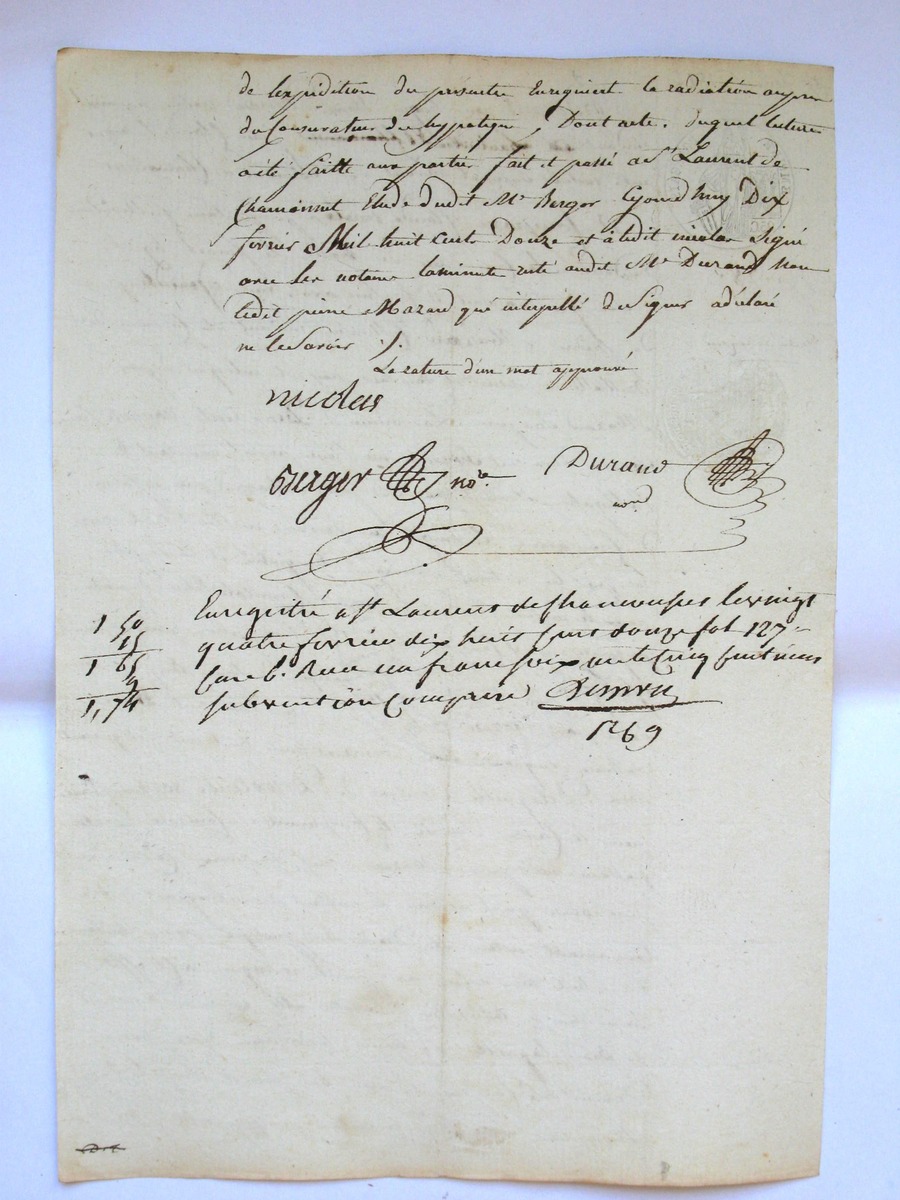 de lexpédition du présente Enreginent la radiation aupres
du Consuvateur des hypoteque, Dont acte. duquel lecture
a été faitte aux parties fait et passé a St Laurent de
Chamousset Etude dudit Me Berger Cejourdhuy Dix
fevrier Mil huit cents Douze et a ledit nicolas Signé
avec les notaires laminute resté audit Me Durand non
ledit pierre Mazard qui interpellé de Signer a déclaré
ne le Savoir ./.
La rature d'un mot approuvé
nicolas
Berger nore. Durand
not
Enregistré a St Laurent de Chamousset le vingt
quatre fevrier dix huit cent douze fol 127
Case 6. Recu un franc soixante cinq centimes
subvention comprise
1 50
15
1 65
9
1,74
1269